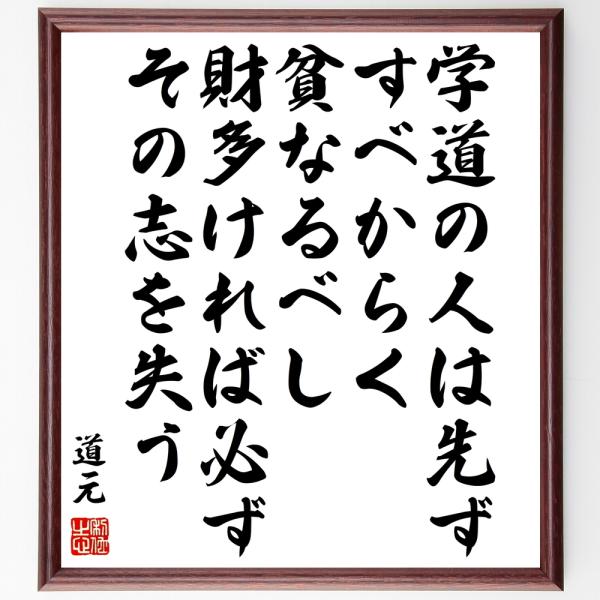 学道の人は先ず
すべからく
貧なるべし
財多ければ必ず
その志を失う
道元